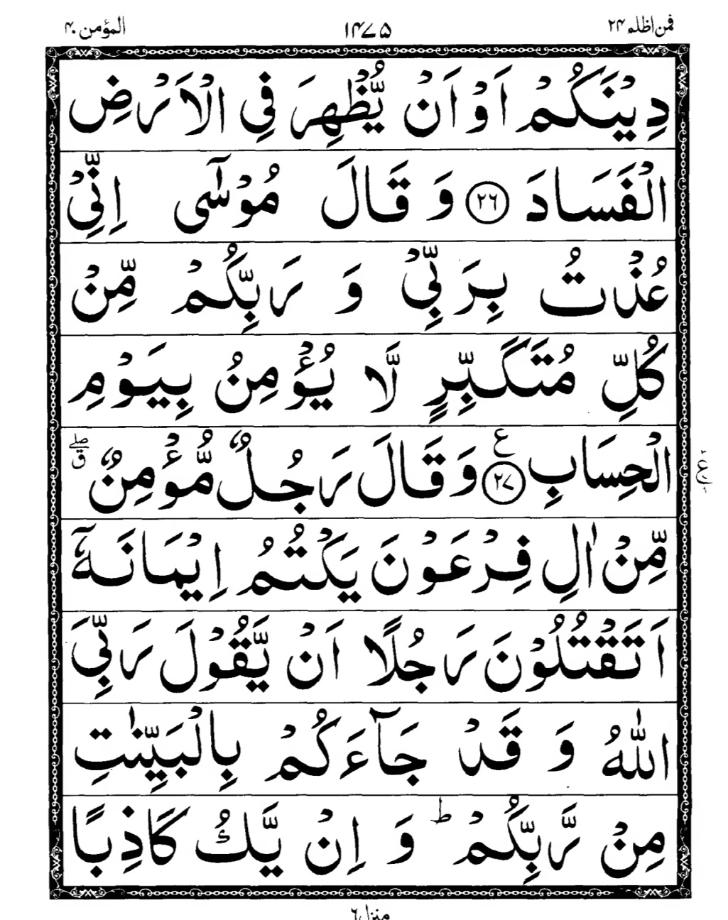 فمن اظلم ٢٤ ١٤٧٥ المؤمن ٤٠
دِيْنَكُمْ اَوْ اَنْ يُّظْهِرَ فِي الْاَرْضِ
الْفَسَادَ ﴿٢٦﴾ وَ قَالَ مُوْسٰۤى اِنِّيْ
عُذْتُ بِرَبِّيْ وَ رَبِّكُمْ مِّنْ
كُلِّ مُتَكَبِّرٍ لَّا يُؤْمِنُ بِيَوْمِ
الْحِسَابِ ﴿٢٧﴾ ع وَ قَالَ رَجُلٌ مُّؤْمِنٌ ۖق
مِّنْ اٰلِ فِرْعَوْنَ يَكْتُمُ اِيْمَانَهٗۤ
اَتَقْتُلُوْنَ رَجُلًا اَنْ يَّقُوْلَ رَبِّيَ
اللّٰهُ وَ قَدْ جَآءَكُمْ بِالْبَيِّنٰتِ
مِنْ رَّبِّكُمْ ؕ وَ اِنْ يَّكُ كَاذِبًا
منزل ٦